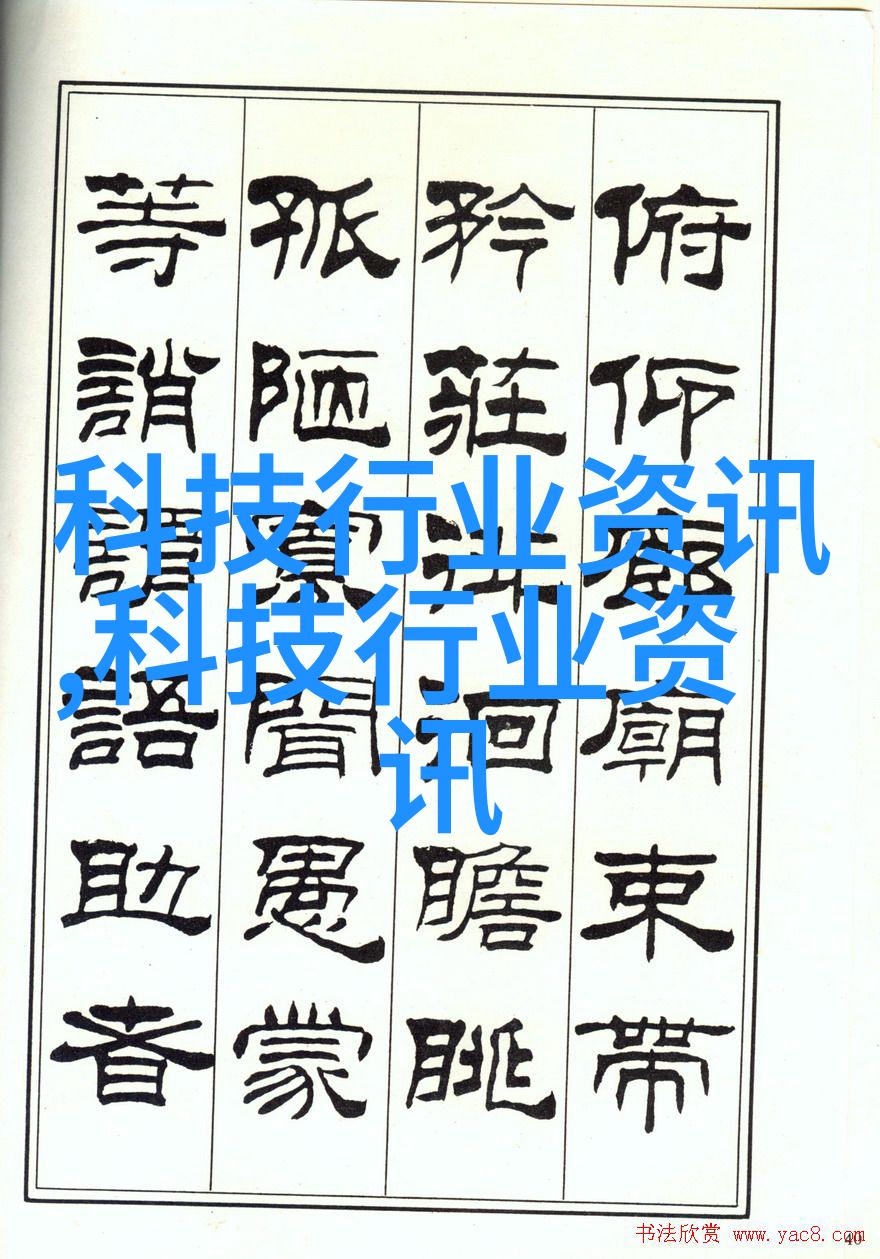 俯仰廊廟束帶
矜莊徘徊瞻眺
孤陋寡聞愚蒙
等誚謂語助者
科技行业资讯
,科技行业资
讯
书法欣赏 www.yac8.com
40